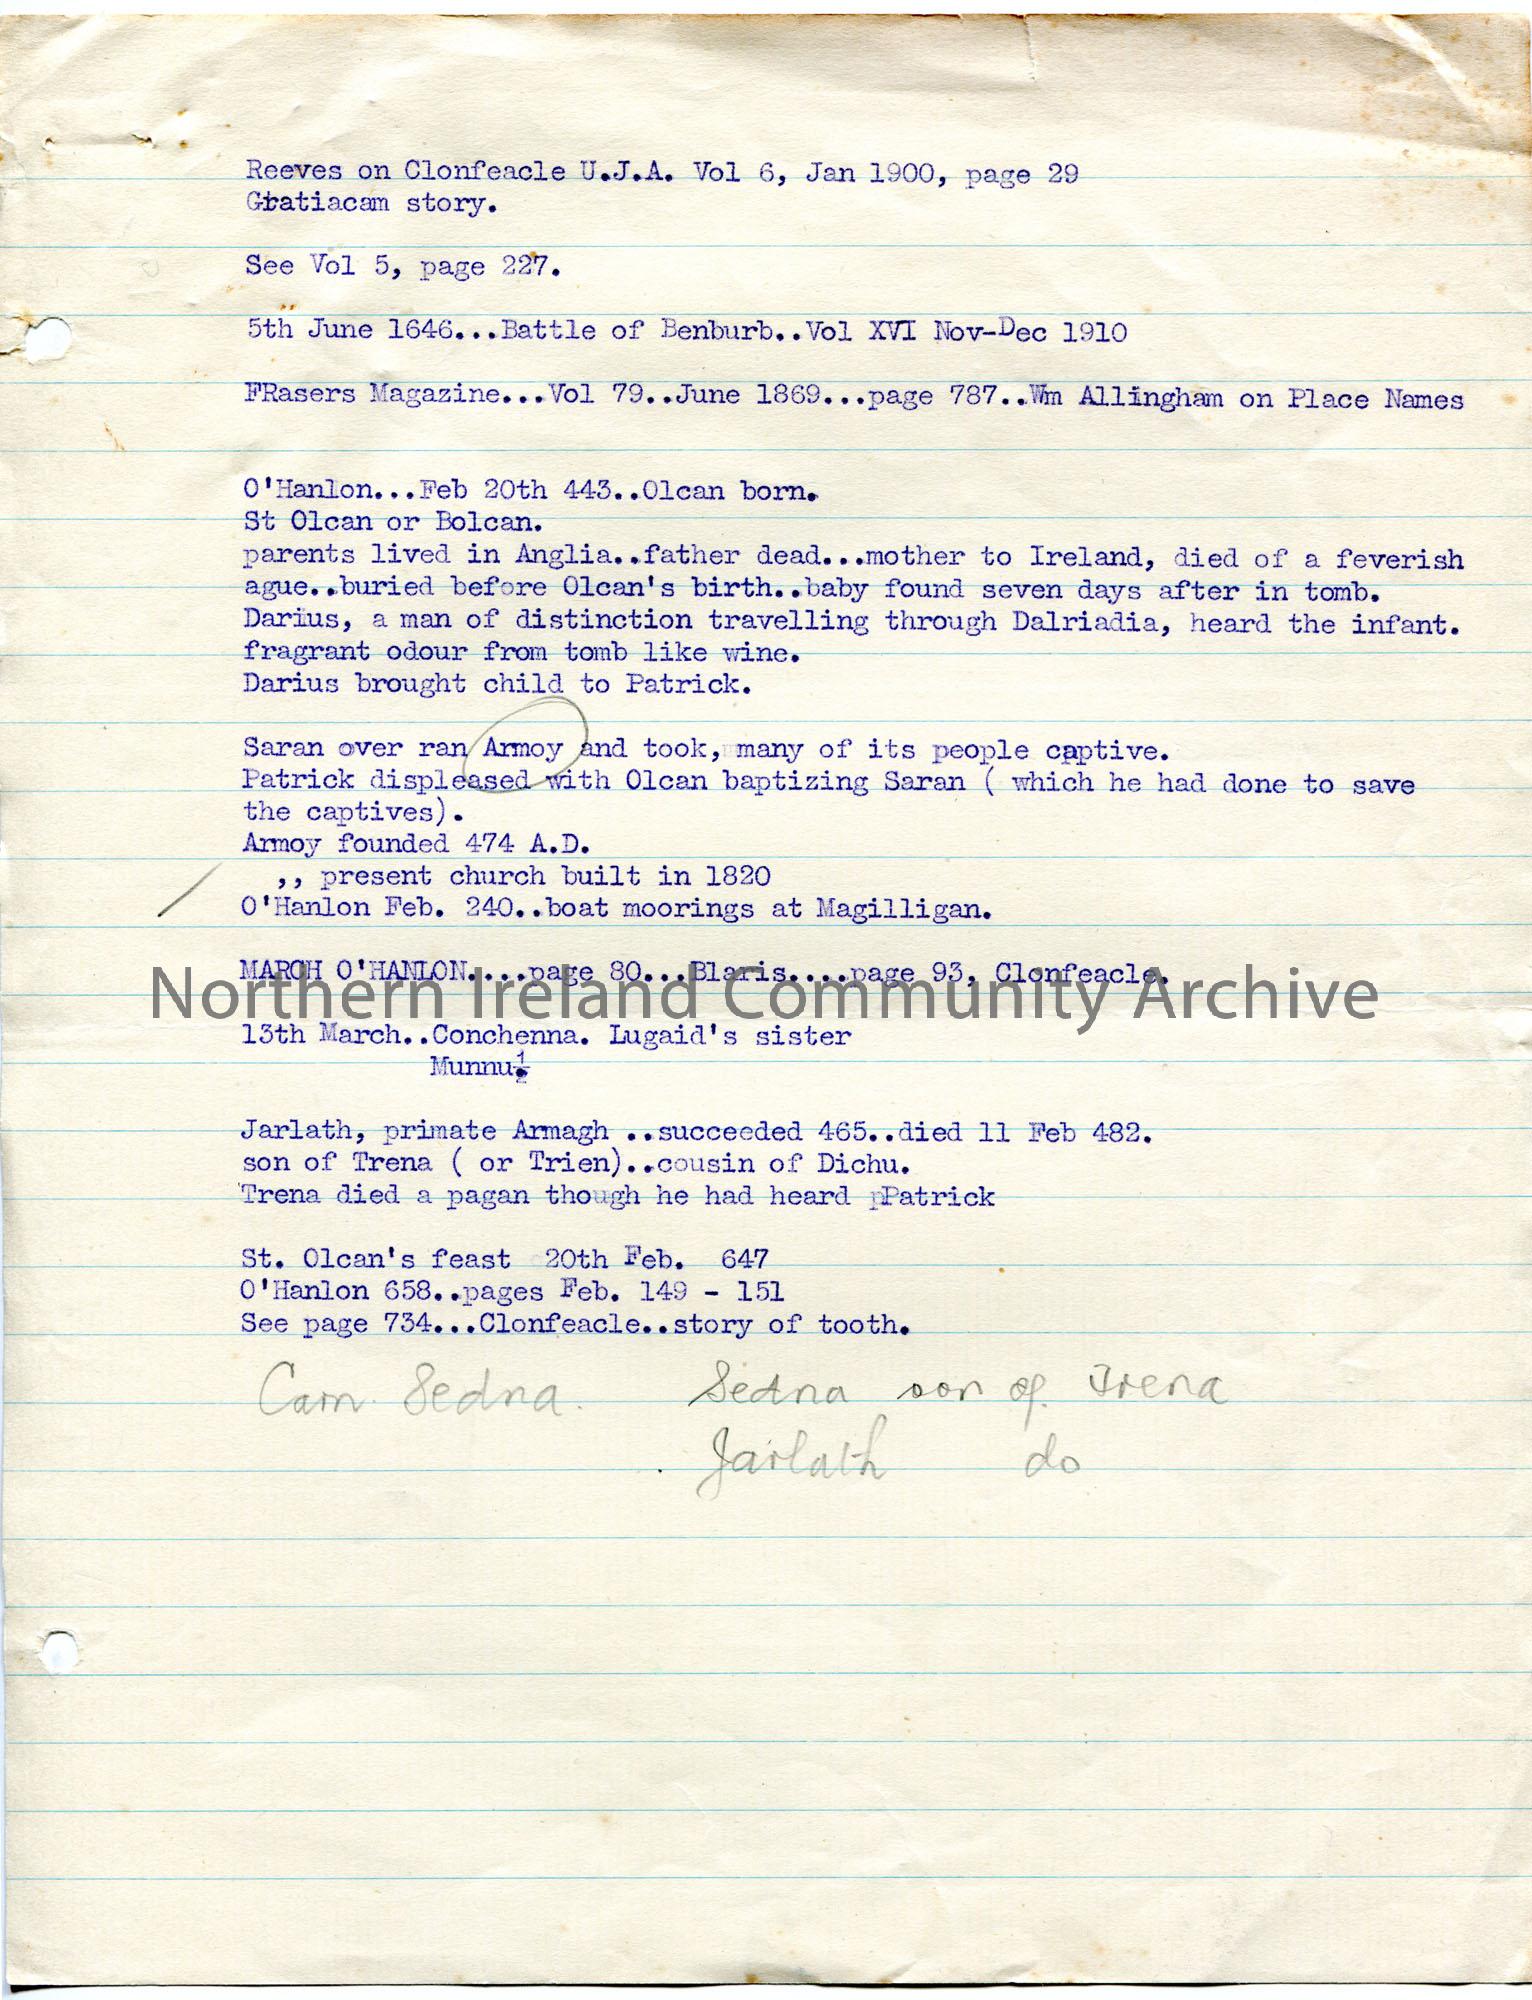 Reeves on Clonfeacle U.J.A. Vol 6, Jan 1900, page 29
Gratiacam story.
See Vol 5, page 227.
5th June 1646...Battle of Benburb..Vol XVI Nov-Dec 1910
FRasers Magazine...Vol 79..June 1869...page 787..Wm Allingham on Place Names
O'Hanlon...Feb 20th 443..Olcan born.
St Olcan or Bolcan.
parents lived in Anglia..father dead...mother to Ireland, died of a feverish
ague..buried before Olcan's birth..baby found seven days after in tomb.
Darius, a man of distinction travelling through Dalriadia, heard the infant.
fragrant odour from tomb like wine.
Darius brought child to Patrick.
Saran over ran Armoy and took, many of its people captive.
Patrick displeased with Olcan baptizing Saran ( which he had done to save
the captives).
Armoy founded 474 A.D.
,, present church built in 1820
O'Hanlon Feb. 240..boat moorings at Magilligan.
MARCH O'HANLON....page 80...Blaris....page 93, Clonfeacle.
Northern Ireland Community Archive
13th March..Conchenna. Lugaid's sister
Munnu½
Jarlath, primate Armagh ..succeeded 465..died 11 Feb 482.
son of Trena ( or Trien)..cousin of Dichu.
Trena died a pagan though he had heard pPatrick
St. Olcan's feast 20th Feb. 647
O'Hanlon 658..pages Feb. 149 - 151
See page 734...Clonfeacle..story of tooth.
Carn Sedna. Sedna son of Trena
Jarlath do